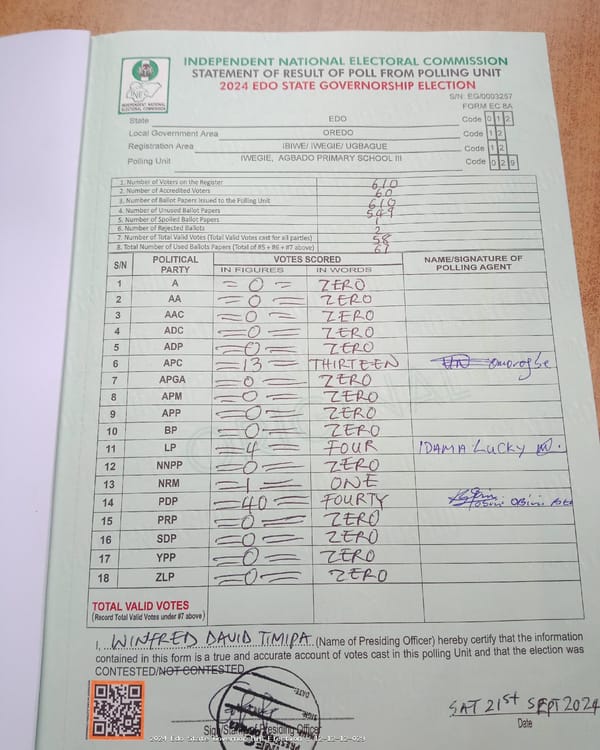 INDEPENDENT NATIONAL ELECTORAL COMMISSION
STATEMENT OF RESULT OF POLL FROM POLLING UNIT
2024 EDO STATE GOVERNORSHIP ELECTION
INDEPENDENT NATIONAL ELECTORAL COMMISSION
S/N: EG/0003257
FORM EC 8A
State EDO Code 0 1 2
Local Government Area OREDO Code 1 2
Registration Area IBIWE/ IWEGIE/ UGBAGUE Code 1 2
Polling Unit IWEGIE, AGBADO PRIMARY SCHOOL III Code 0 2 9
1. Number of Voters on the Register 610
2. Number of Accredited Voters 60
3. Number of Ballot Papers Issued to the Polling Unit 610
4. Number of Unused Ballot Papers 549
5. Number of Spoiled Ballot Papers 1
6. Number of Rejected Ballots 2
7. Number of Total Valid Votes (Total Valid Votes cast for all parties) 58
8. Total Number of Used Ballots Papers (Total of #5 + #6 + #7 above) 61
S/N POLITICAL PARTY VOTES SCORED NAME/SIGNATURE OF POLLING AGENT
IN FIGURES IN WORDS
1 A =0= ZERO
2 AA =0= ZERO
3 AAC =0= ZERO
4 ADC =0= ZERO
5 ADP =0= ZERO
6 APC =13= THIRTEEN Omorogbe
7 APGA =0= ZERO
8 APM =0= ZERO
9 APP =0= ZERO
10 BP =0= ZERO
11 LP =4= FOUR IDAMA LUCKY
12 NNPP =0= ZERO
13 NRM =1= ONE
14 PDP =40= FOURTY
15 PRP =0= ZERO
16 SDP =0= ZERO
17 YPP =0= ZERO
18 ZLP =0= ZERO
TOTAL VALID VOTES
(Record Total Valid Votes under #7 above)
I, WINFRED DAVID TIMIPA (Name of Presiding Officer) hereby certify that the information
contained in this form is a true and accurate account of votes cast in this polling Unit and that the election was
CONTESTED/NOT CONTESTED
SAT 21ST SEPT 2024
Sign/Stamp of Presiding Officer
Date